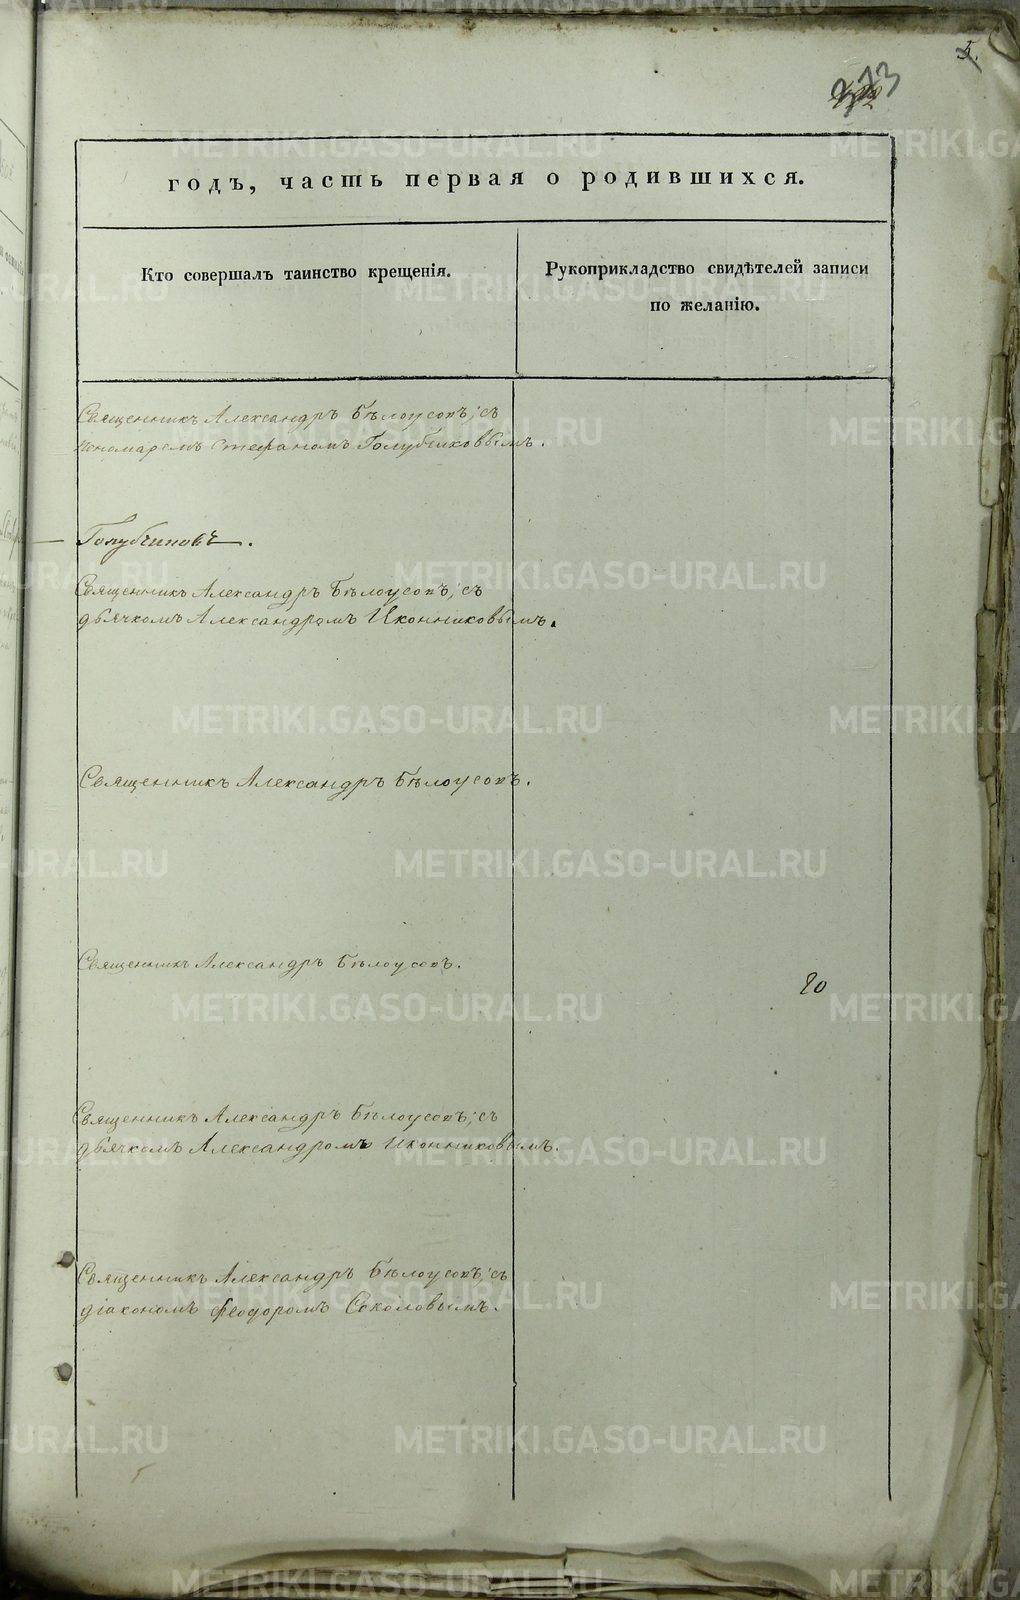 5.
373
годъ, часть первая о родившихся.
Кто совершалъ таинство крещенія.
Рукоприкладство свидѣтелей записи
по желанію.
Священникъ Александръ Бѣлоусовъ; съ
пономаремъ Стефаномъ Голубчиковымъ.
Голубчиковъ.
Священникъ Александръ Бѣлоусовъ; съ
дьячкомъ Александромъ Иконниковымъ.
Священникъ Александръ Бѣлоусовъ.
Священникъ Александръ Бѣлоусовъ.
20
Священникъ Александръ Бѣлоусовъ; съ
дьячкомъ Александромъ Иконниковымъ.
Священникъ Александръ Бѣлоусовъ; съ
діакономъ Феодоромъ Соколовымъ.
METRIKI.GASO-URAL.RU